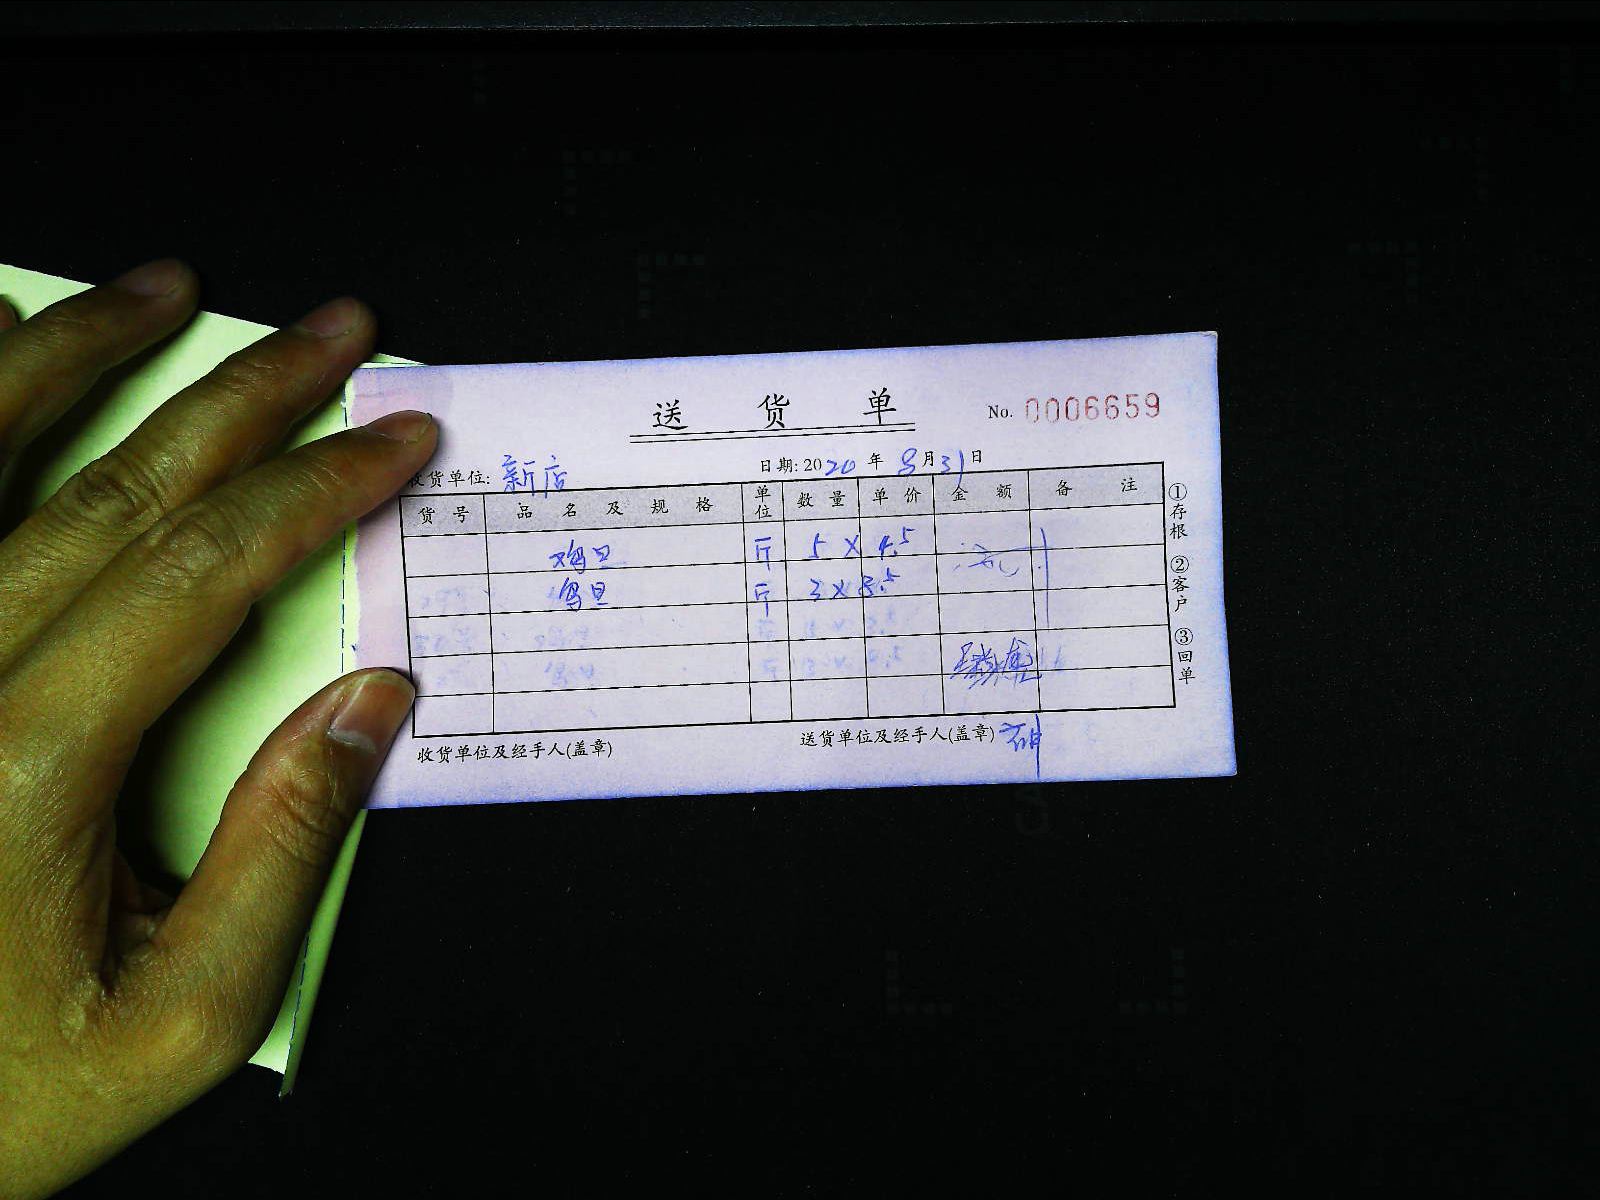 送 货 单 No. 0006659
收货单位: 新店 日期: 2020 年 8月31日
货 号 品 名 及 规 格 单位 数 量 单 价 金 额 备 注
鸡旦 斤 5 X 4.5
斤 3 X 3.5
①存根 ②客户 ③回单
收货单位及经手人(盖章) 送货单位及经手人(盖章)